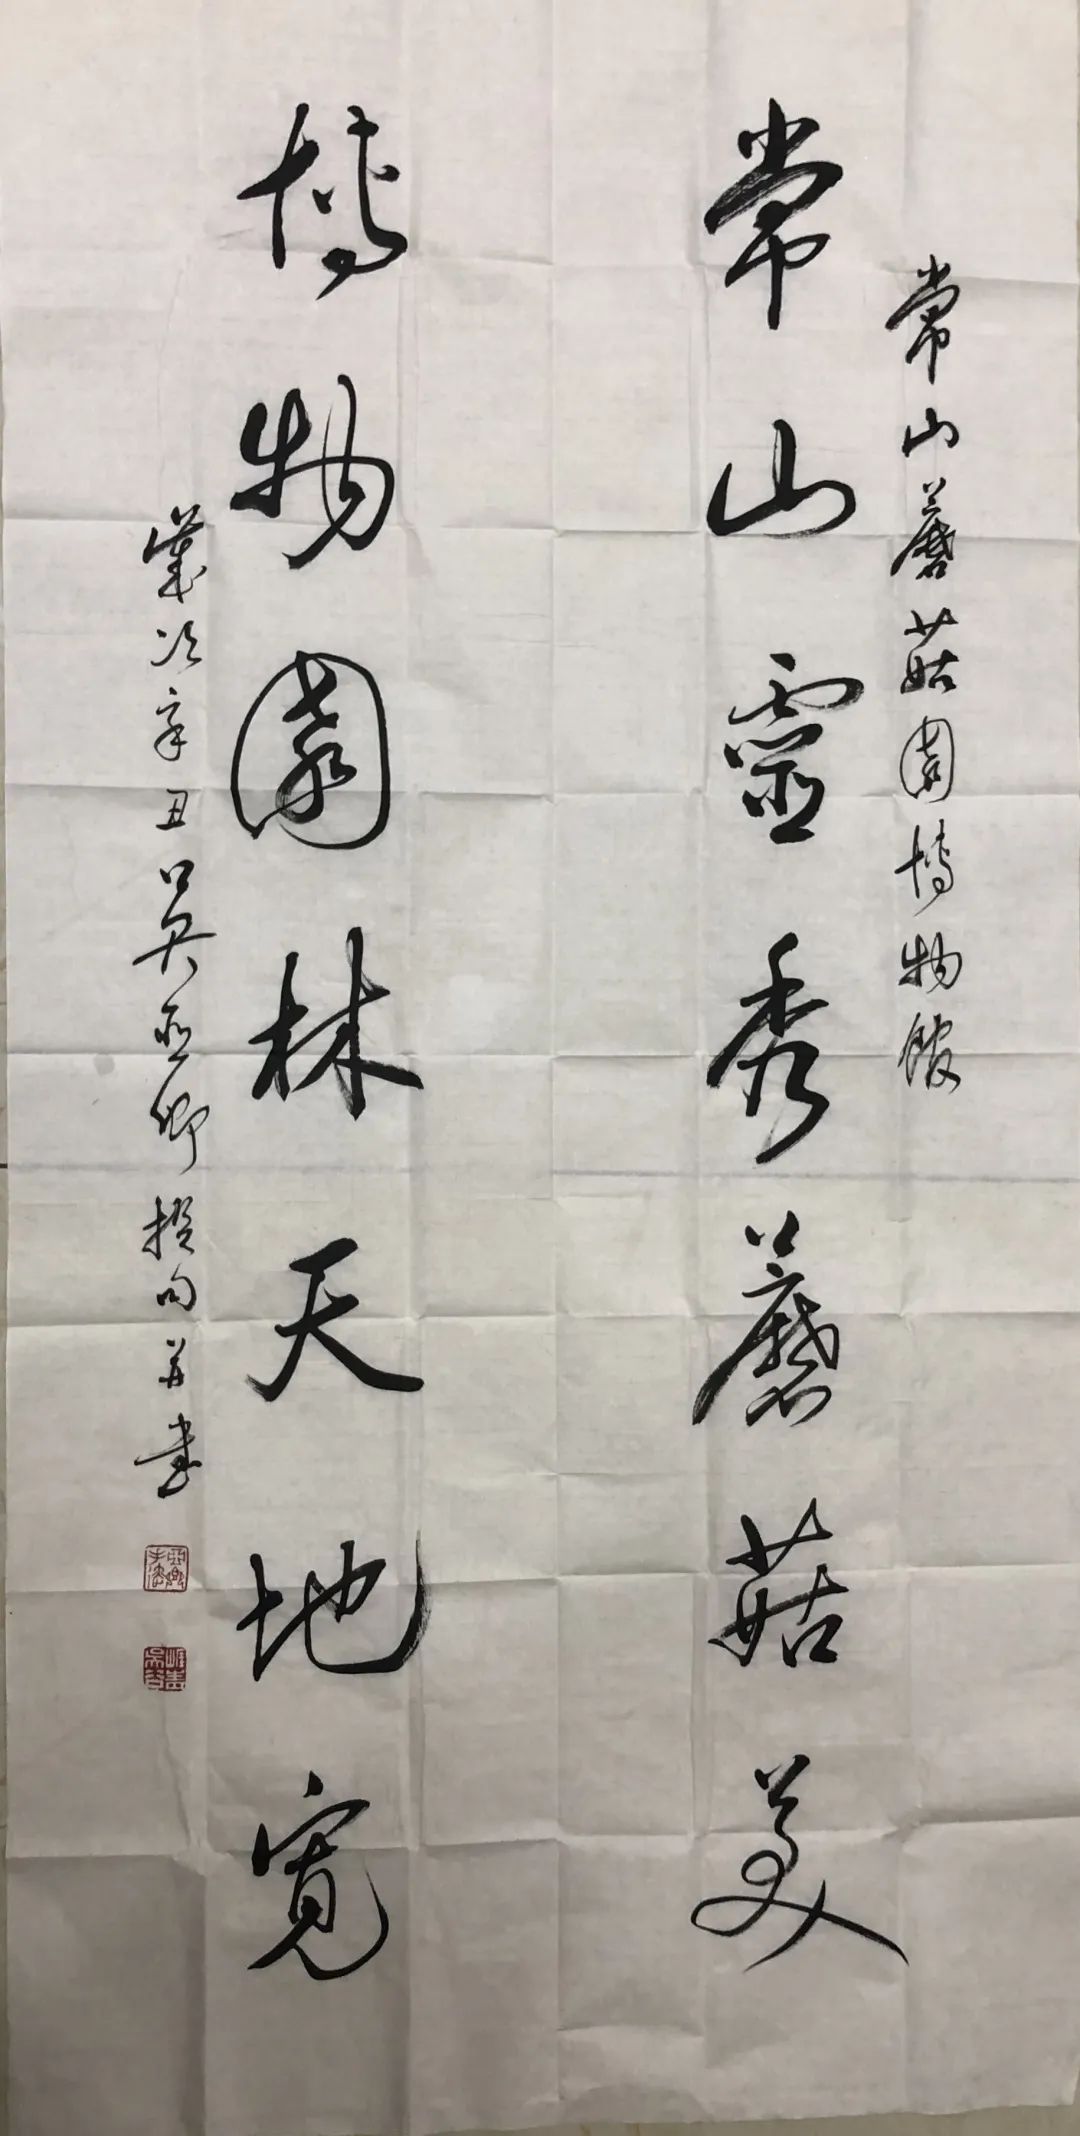 常山蘑菇园博物馆
常山靈秀蘑菇美
博物園林天地寬
歲次辛丑吴亚卿撰句并書